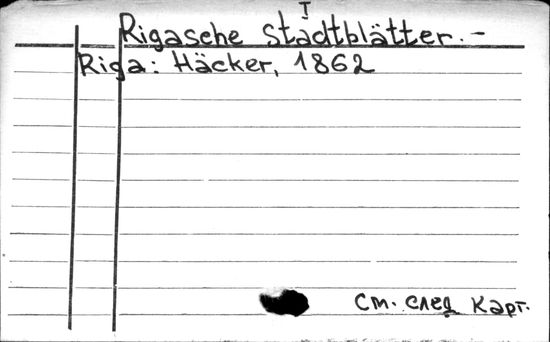 I
Rigasche Stadtblätter.-
Riga: Häcker, 1862
См. след карт.